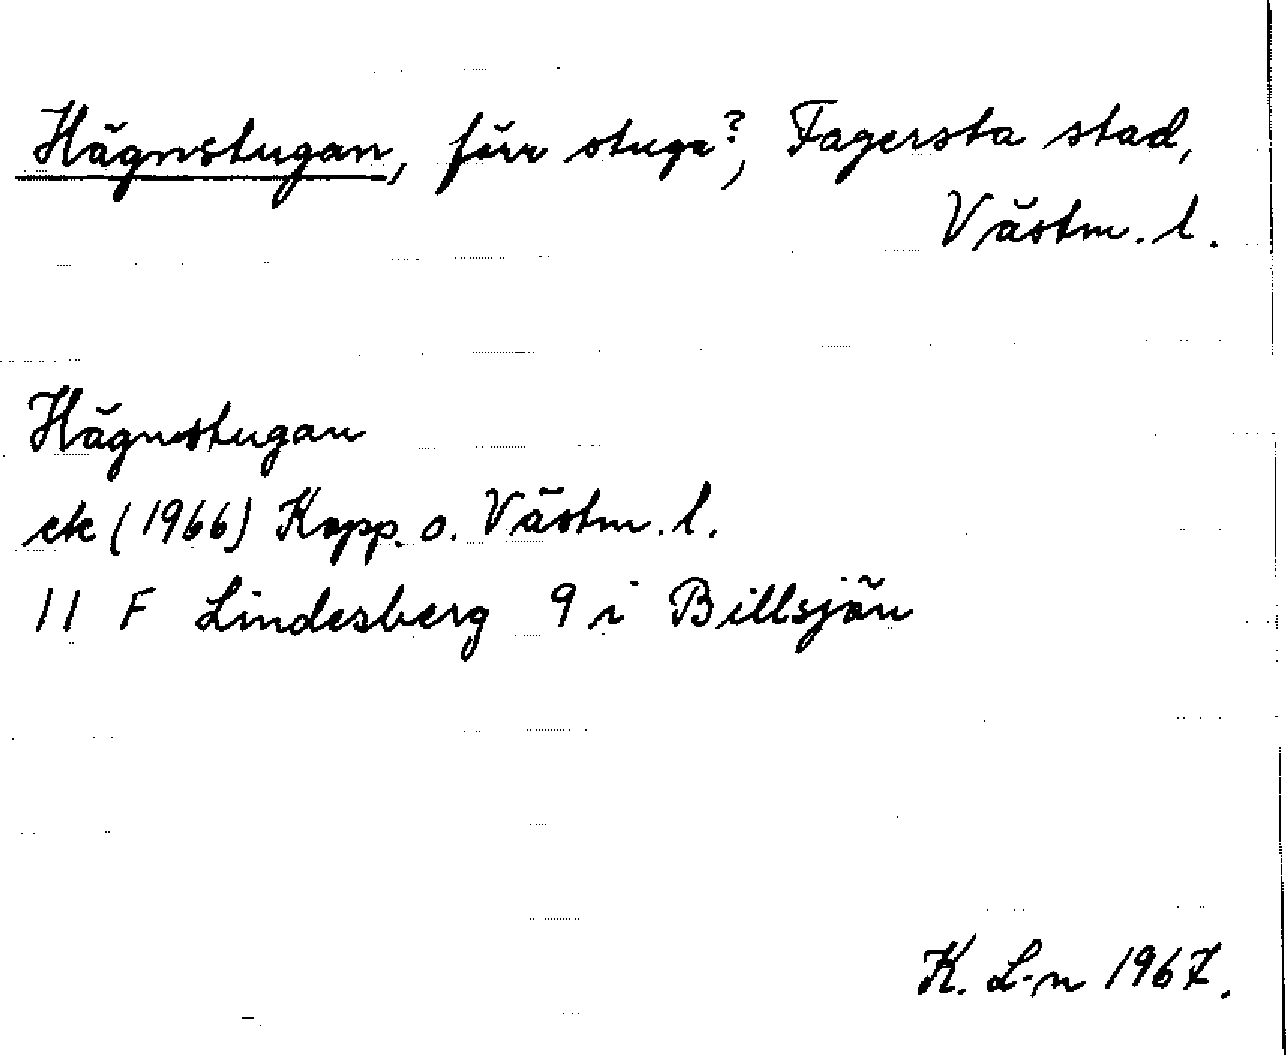 Hägnstugan, förr stuga?, Fagersta stad,
Västm. l.
Hägnstugan
ek (1966) Kopp. o. Västm. l.
11 F Lindesberg 9 i Billsjön
K. L-n 1967.